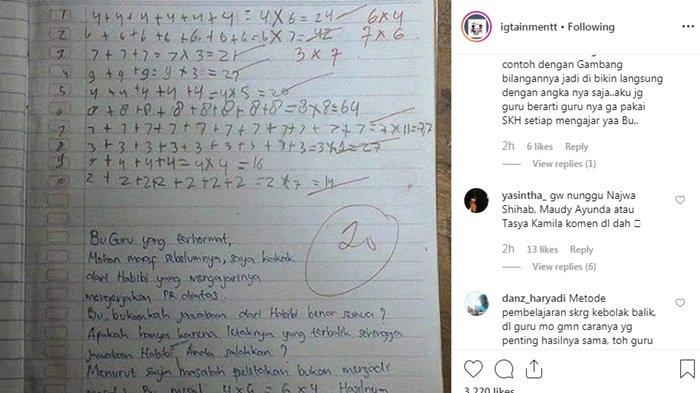 1 4+4+4+4+4+4 = 4 x 6 = 24 6 x 4
2 6+6+6+6+6+6+6=6 x 7 = 42 7 x 6
3 7+7+7=7 x 3 = 21 3 x 7
4 9+9+9=9 x 3 = 27
5 4+4+4+4+4=4x5=20
6 8+8+8+8+8+8+8+8=8x8=64
7 7+7+7+7+7+7+7+7+7+7+7=7x11=77
8 3+3+3+3+3+3+3+3+3=3x9=27
9 4+4+4+4=4x4=16
10 2+2+2+2+2+2+2=2x7=14
20
Bu Guru yang terhormat,
Mohon maaf sebelumnya, saya kakak
dari Habibi yang mengajarinya
mengerjakan PR diatas.
Bu, bukankah jawaban dari Habibi benar semua?
Apakah hanya karena letaknya yang terbalik sehingga
jawaban Habibi Anda salahkan?
Menurut saya masalah peletakan bukan menjadi
4x6=6x4 Hasilnya
igtainmentt • Following
contoh dengan Gambang
bilangannya jadi di bikin langsung
dengan angka nya saja..aku jg
guru berarti guru nya ga pakai
SKH setiap mengajar yaa Bu..
2h 6 likes Reply
View replies (1)
yasintha_ gw nunggu Najwa
Shihab, Maudy Ayunda atau
Tasya Kamila komen dl dah
2h 13 likes Reply
View replies (6)
danz_haryadi Metode
pembelajaran skrg kebolak balik,
dl guru mo gmn caranya yg
penting hasilnya sama, toh guru
3,220 likes